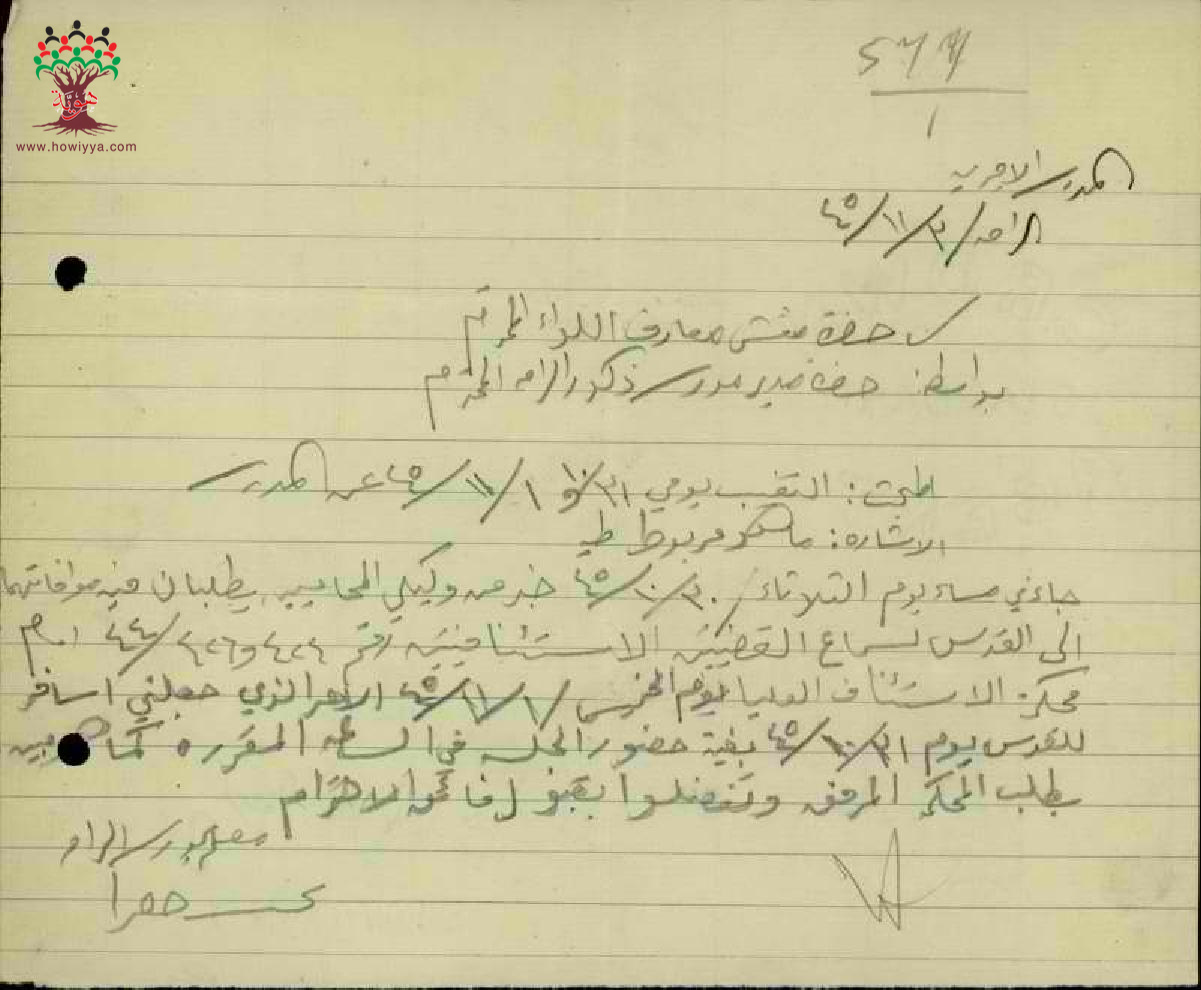 هوية
www.howiyya.com
١
المدرسة الاميرية
الرامه / ٣ / ١١ / ٤٥
حضرة مفتش معارف اللواء المحترم
بواسطة: حضرة مدير مدرسة ذكور الرامه المحترم
المبحث: التغيب يومي ٣١ / ١٠ و ١ / ١١ / ٤٥ عن المدرسة
الاشاره: ما هو مربوط طيه
جاءني مساء يوم الثلاثاء / ٣٠ / ١٠ / ٤٥ خبر من وكيلي المحاميين يطلبان فيه موافاتهما
الى القدس لسماع القضيتين الاستئنافيتين رقم ٤٢٤ و ٤٢٦ / ٤٤ امام
محكمة الاستئناف العليا يوم الخميس / ١ / ١١ / ٤٥ الامر الذي جعلني اسافر
للقدس يوم ٣١ / ١٠ / ٤٥ بغية حضور الجلسه في الساعه المقرره كما هو مبين
بطلب المحكمة المرفق وتفضلوا بقبول فائق الاحترام
معلم بمدرسة الرامه